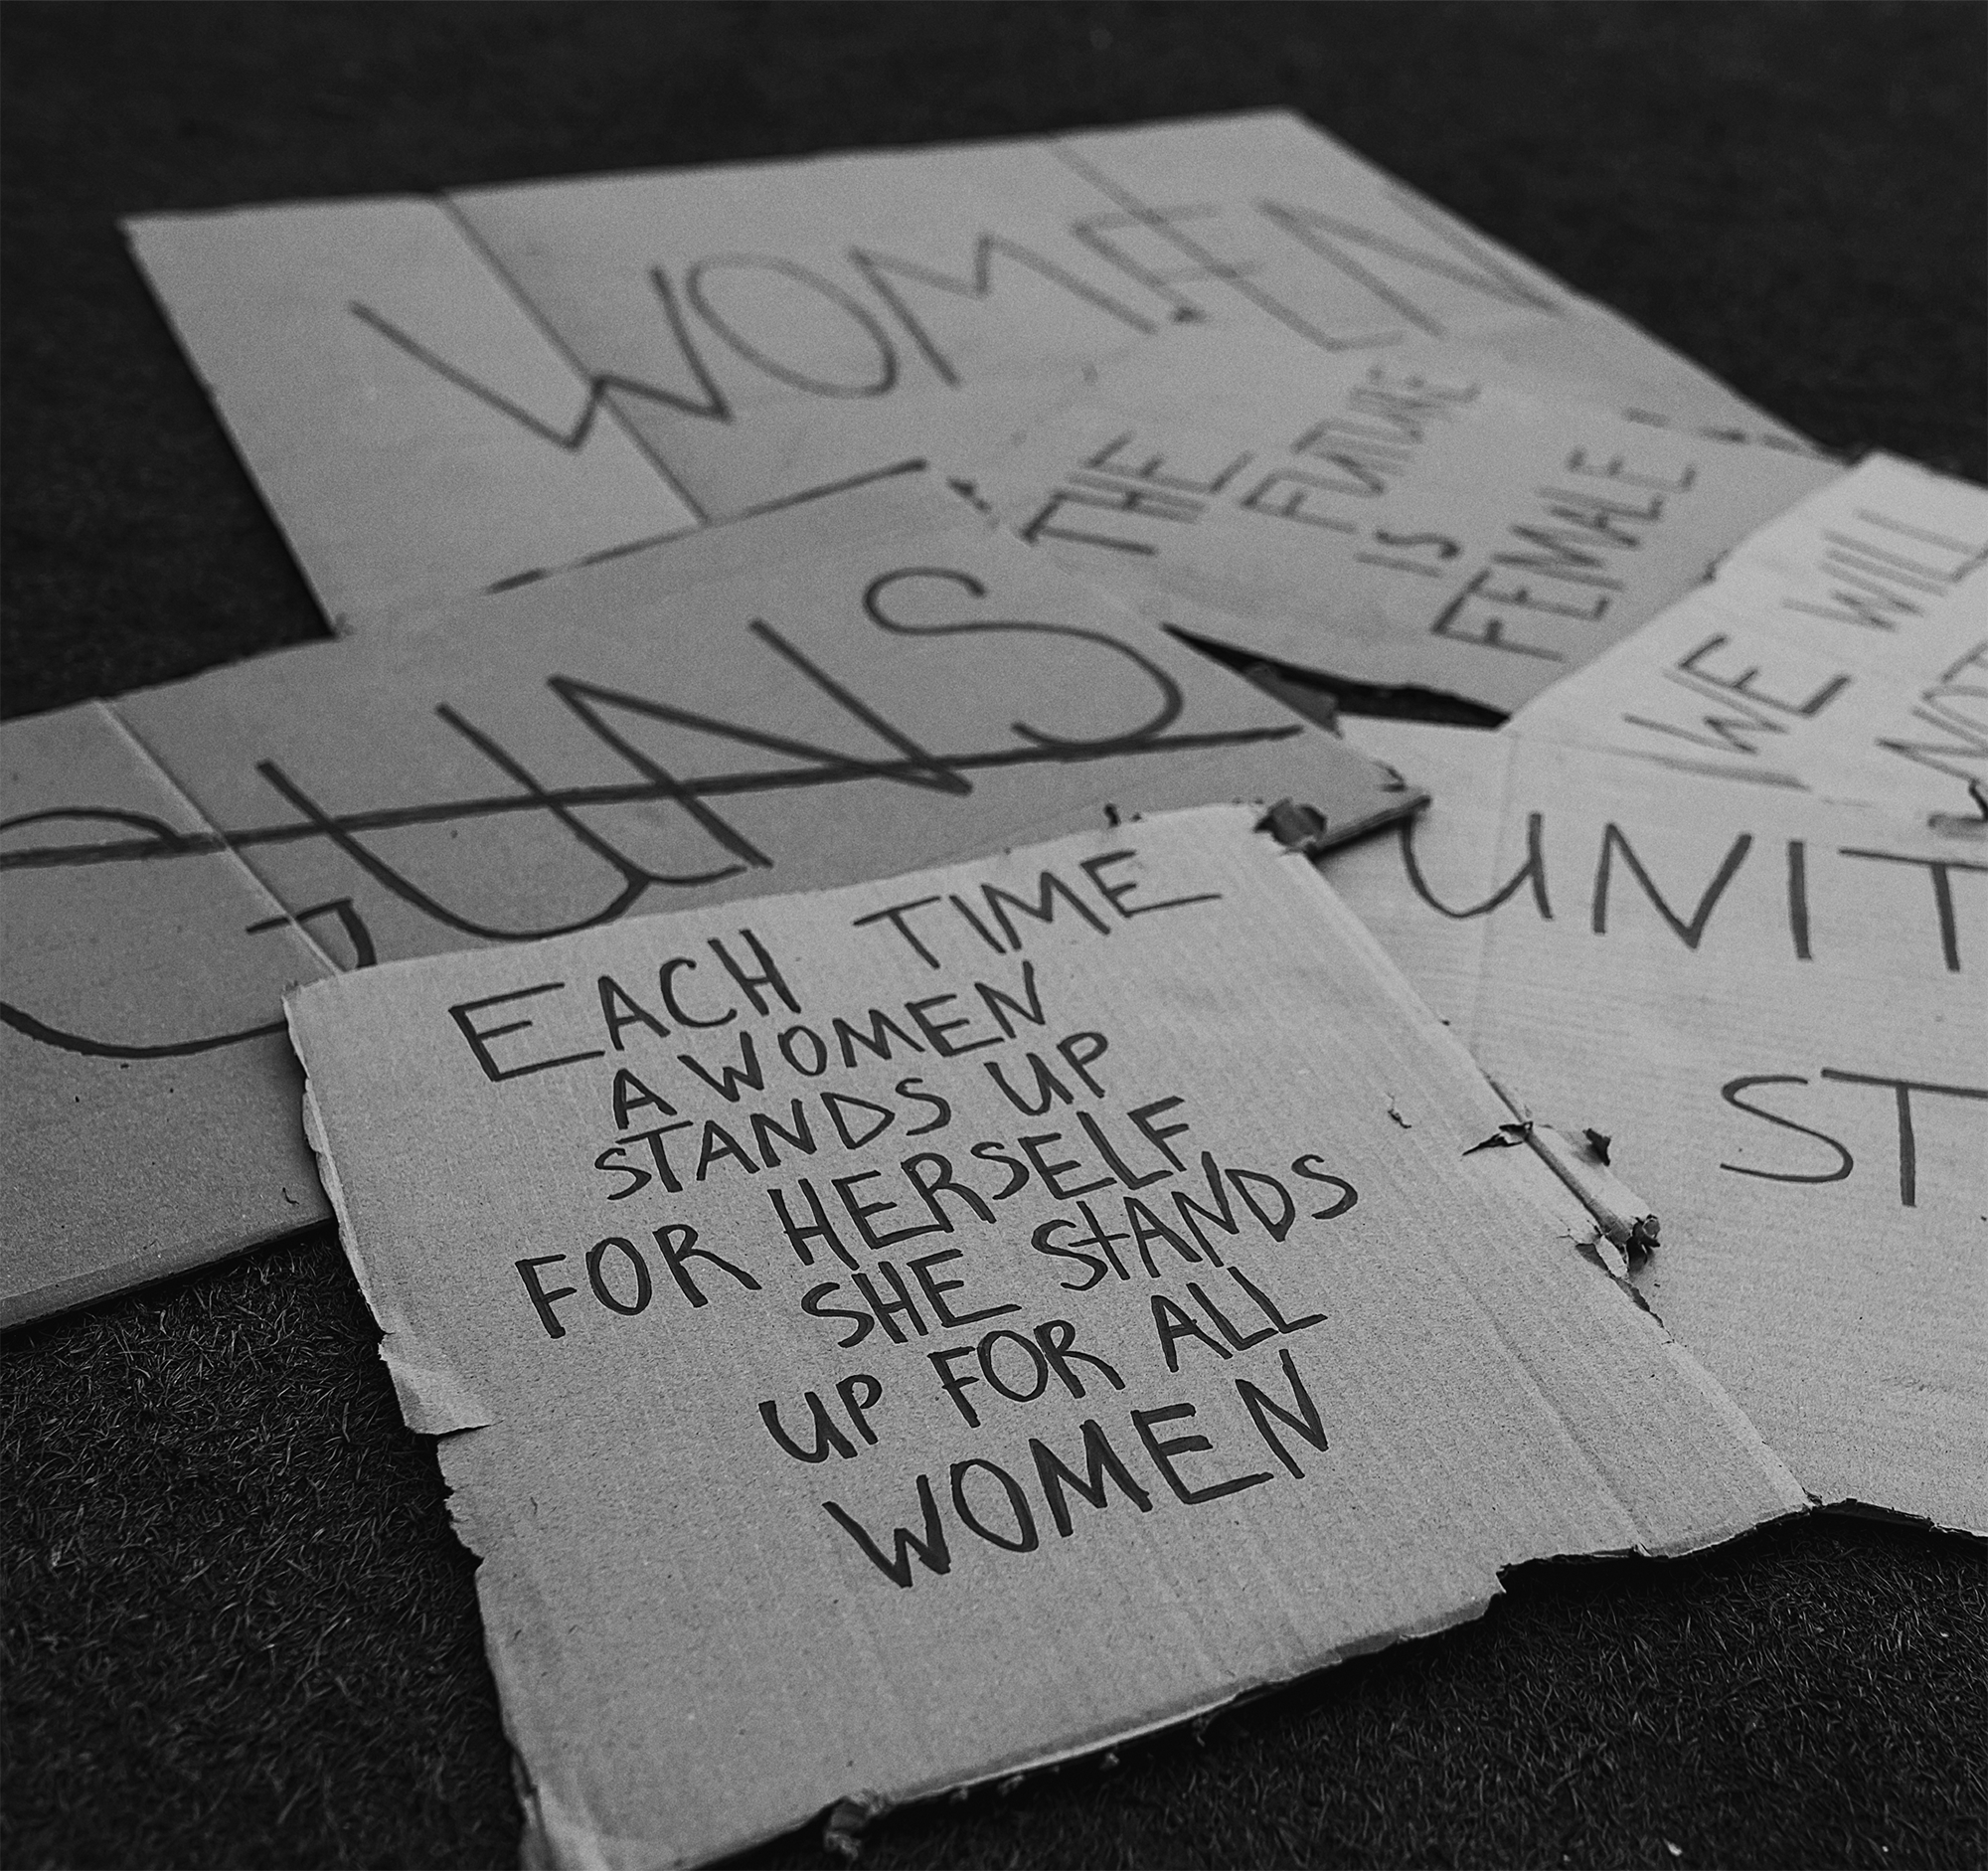 WOMEN
THE
FUTURE
IS
FEMALE
WE WILL
NOT
GUNS
UNIT
ST
EACH TIME
A WOMEN
STANDS UP
FOR HERSELF
SHE STANDS
UP FOR ALL
WOMEN